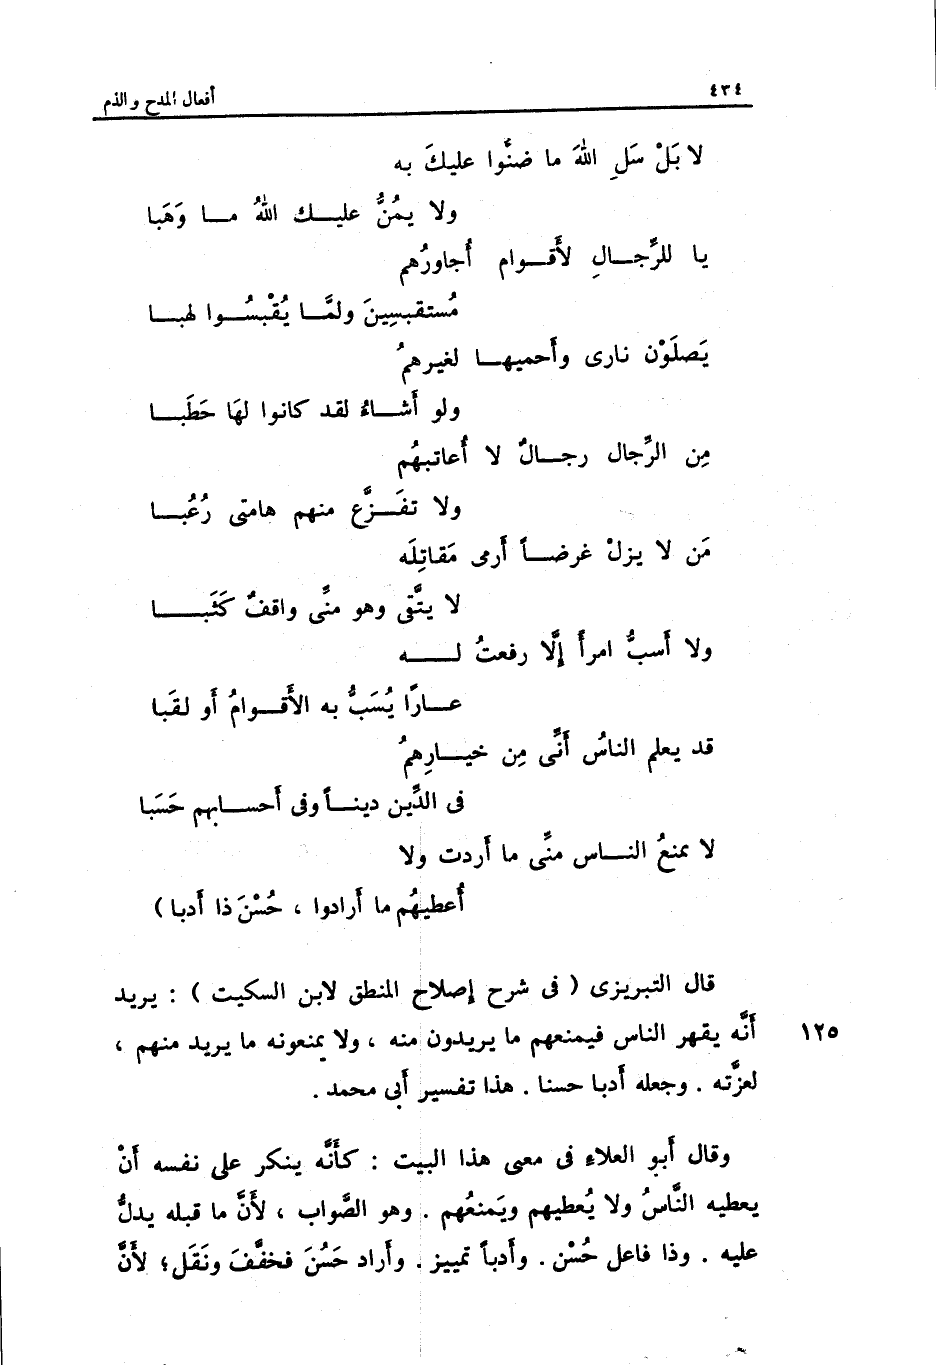 ٤٣٤
أفعال المدح والذم
لا بَلْ سَلِ اللهَ ما ضنُّوا عليكَ به
ولا يمُنُّ عليـــك اللهُ مـــا وَهَبا
يا للرِّجـــالِ لأَقـــوام أُجاورُهم
مُستقبسِينَ ولمَّـــا يُقْبسُـــوا لهبـــا
يَصلَوْن نارى وأَحميهـــا لغيرهمُ
ولو أَشـــاءُ لقد كانوا لهَا حَطَبـــا
مِن الرِّجال رجـــالٌ لا أُعاتبهُم
ولا تفَـــزَّع منهم هامتى رُعُبـــا
مَن لا يزلْ غرضـــاً أَرمى مَقاتِلَه
لا يتَّقى وهو منِّى واقفٌ كَثَبـــا
ولا أَسبُّ امرأً إلَّا رفعتُ لـــه
عـــارًا يُسَبُّ به الأَقـــوامُ أَو لقَبا
قد يعلم الناسُ أَنِّى مِن خيـــارِهمُ
فى الدِّين دينـــاً وفى أَحســـابهم حَسَبا
لا يمنعُ النـــاس منِّى ما أَردت ولا
أُعطيهُم ما أَرادوا ، حُسْنَ ذا أَدبا )
قال التبريزى ( فى شرح إصلاح المنطق لابن السكيت ) : يريد
أَنَّه يقهر الناس فيمنعهم ما يريدون منه ، ولا يمنعونه ما يريد منهم ،
١٢٥
لعزَّته . وجعله أَدبا حسنا . هذا تفسير أَبى محمد .
وقال أَبو العلاءِ فى معنى هذا البيت : كأَنَّه ينكر على نفسه أَنْ
يعطيه النَّاسُ ولا يُعطيهم ويَمنعُهم . وهو الصَّواب ، لأَنَّ ما قبله يدلُّ
عليه . وذا فاعل حُسْن . وأَدباً تمييز . وأَراد حَسُنَ فخفَّفَ ونَقَل؛ لأَنَّ